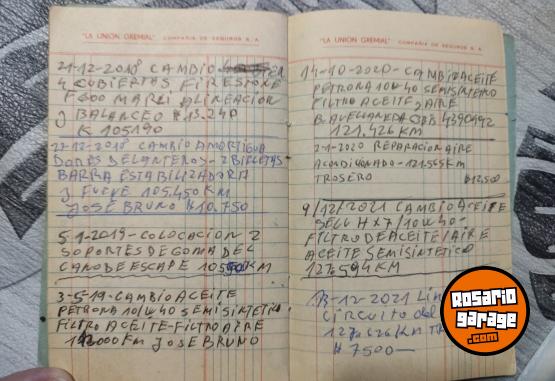 "LA UNION GREMIAL" COMPAÑIA DE SEGUROS S. A.
21-12-2018 CAMBIO
4 CUBIERTAS FIRESTONE
F600 MARCA ALINEACION
y BALANCEO $13.240
K 105190
27-12-2018 CAMBIO AMORTIGUA
DORES DELANTEROS-2 BIELETAS-
BARRA ESTABILIZADORA
y FUEYE 105.450 KM
JOSE BRUNO $10.750
5-1-2019-COLOCACION 2
SOPORTES DE GOMA DEL
CANO DE ESCAPE KM
3-5-19-CAMBIO ACEITE
PETRONA 10W40 SEMISINTETICO
FILTRO ACEITE-FILTRO AIRE
JOSE BRUNO
"LA UNION GREMIAL" COMPAÑIA DE SEGUROS S. A.
14-10-2020-CAMBIO ACEITE
PETRONA 10W40 SEMISINTETICO
FILTRO ACEITE y AIRE
B. AVELLANEDA 4390492
121,426 KM
2-1-2020 REPARACION AIRE
ACONDICIONADO-121.565 KM
TROSERO $12,500
9/12/2021 CAMBIO ACEITE
SELL HX7/10W40-
FILTRO DE ACEITE/AIRE
ACEITE SEMISINTETICO
127.594 KM
13-12-2021
CIRCUITO del
127.626 KM
$ 7500—
Rosario
garage
.com